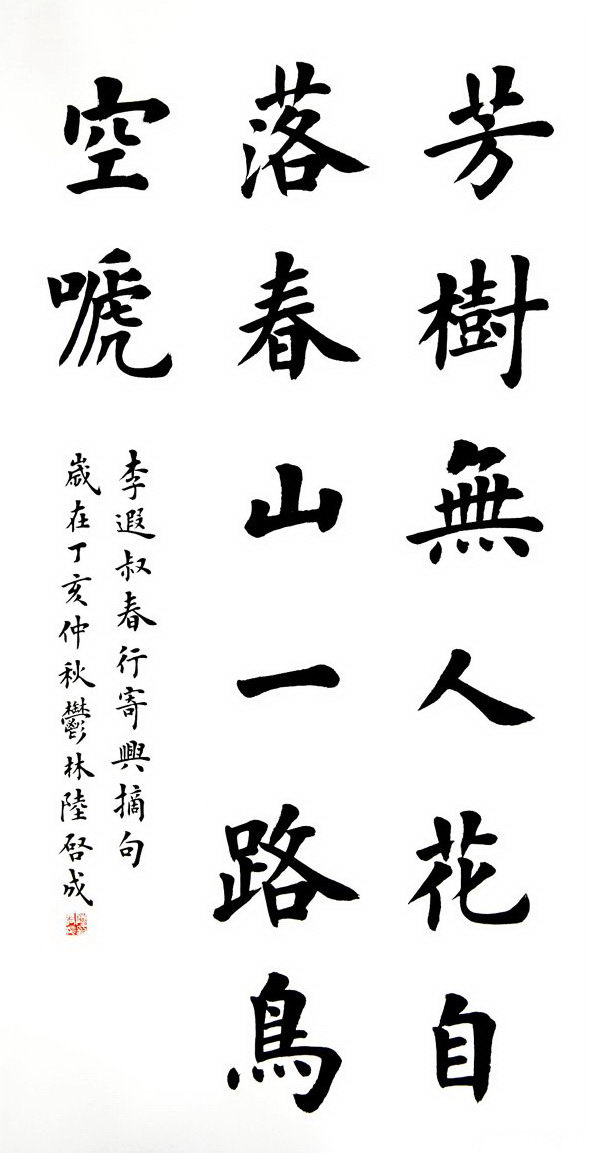 芳樹無人花自
落春山一路鳥
空嗁
李遐叔春行寄興摘句
歲在丁亥仲秋鬱林陸啓成